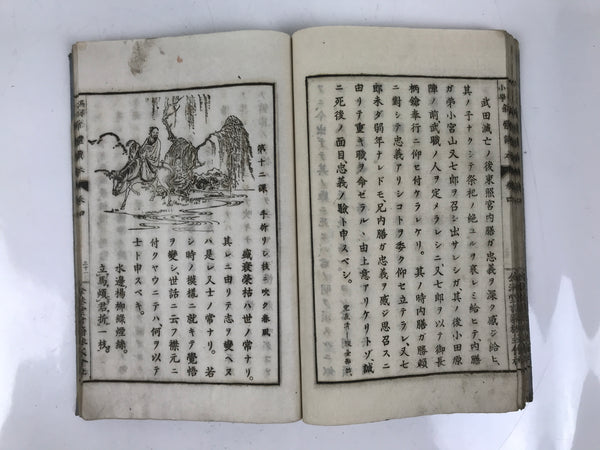 武田滅亡ノ後東照宮内膳ガ忠義ヲ深ク感ジ給ヒ、
其ノ子ナクシテ祭祀ノ絶ユルヲ哀レミ給ヒテ、内膳
ガ弟小宮山又七郎ヲ召シ出サレシガ、其ノ後小田原
陣ノ前武職ノ人ヲ定メラレシニ、又七郎ヲ以テ御長
柄鎗奉行ニ仰セ付ケラレケリ。其ノ時内膳ガ勝頼
ニ對シテ忠義アリシコトヲ委ク仰セ立テラレ、又七
郎未ダ弱年ナレドモ、兄内膳ガ忠義ヲ感ジ思召スニ
由リテ重キ職ヲ命ゼラル、由上意アリケリトゾ、誠
ニ死後ノ面目忠義ノ驗ト申スベシ。
第十二課
手折リシ枝ニ吹ク春風
盛衰榮枯ハ世ノ常ナリ。
其レニ由リテ志ヲ變ヘヌ
ハ是レ又士ノ常ナリ。若
シ時ノ模樣ニ就キテ覺悟
ヲ變シ、世話ニ云フ襟元ニ
付クヤウニテハ何ヲ以テ
士ト申スベキ。
水邊楊柳綠煙絲。
立馬煩君折一枝。